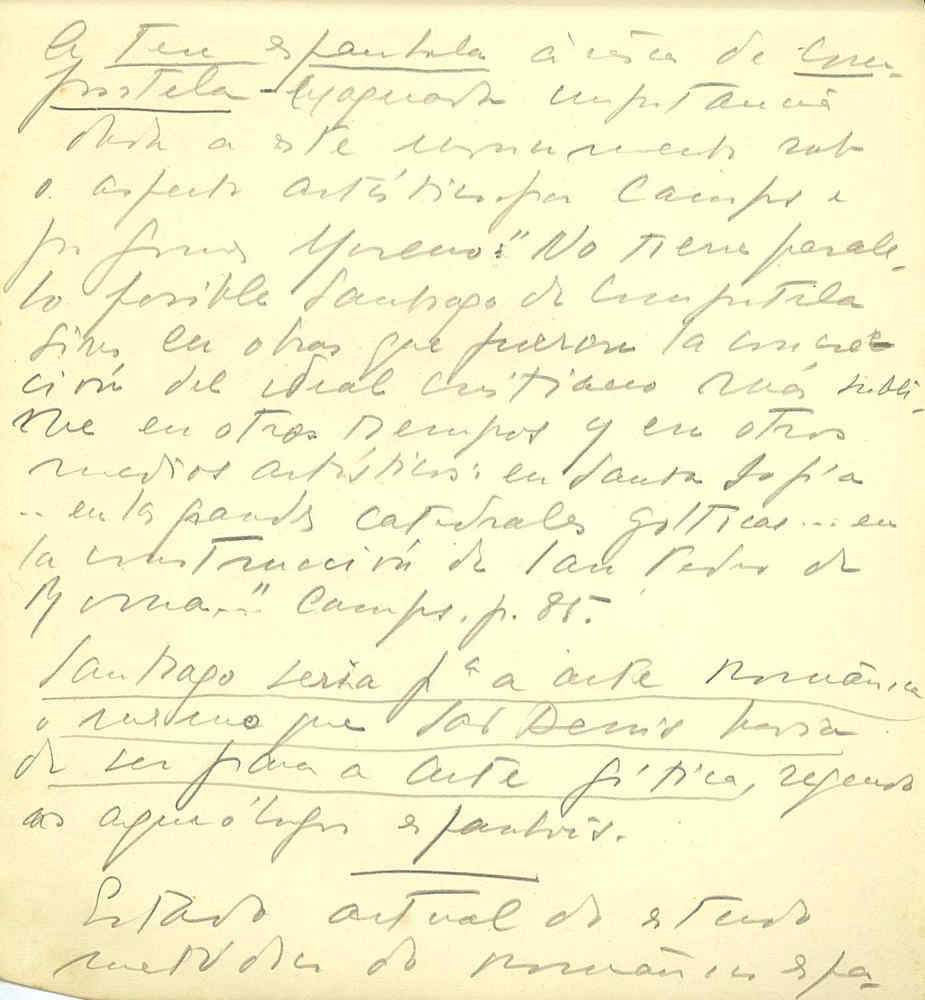 A Tese espanhola àcêrca de Com-
postela - Exagerada importancia
dada a este monumento sob
o aspecto artístico por Camps e
por Gomez Moreno: "No tiene parale-
lo posible Santiago de Compostela
sino en obras que fueron la concre-
ción del ideal cristiano más subli-
me en otros tiempos y en otros
medios artísticos: en Santa Sofía
... en las grandes catedrales góticas ... en
la construcción de San Pedro de
Roma..." Camps, p. 85.
Santiago seria pª a arte românica
o mesmo que São Denis havia
de ser para a arte gótica, segundo
os arqueólogos espanhois.
Estado actual do estudo
metódico do românico espa-